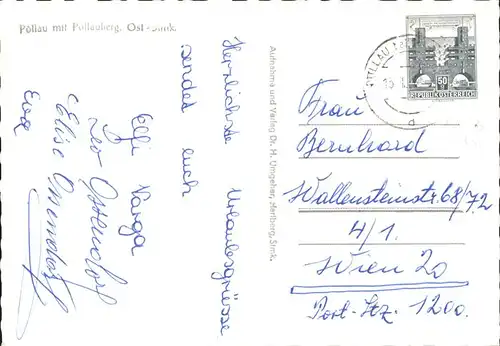 Pöllau mit Pöllauberg, Ost-Stmk.
Herzlichste Urlaubsgrüsse
sendet euch
Elli Varga
Leo Ostendorf
Elise
Eva
Aufnahme und Verlag Dr. H. Umgeher, Hartberg, Stmk.
PÖLLAU
50
REPUBLIK ÖSTERREICH
Frau
Bernhard
Wallensteinstr. 68/72
4/1.
Wien 20
Post-Ltz. 1200.